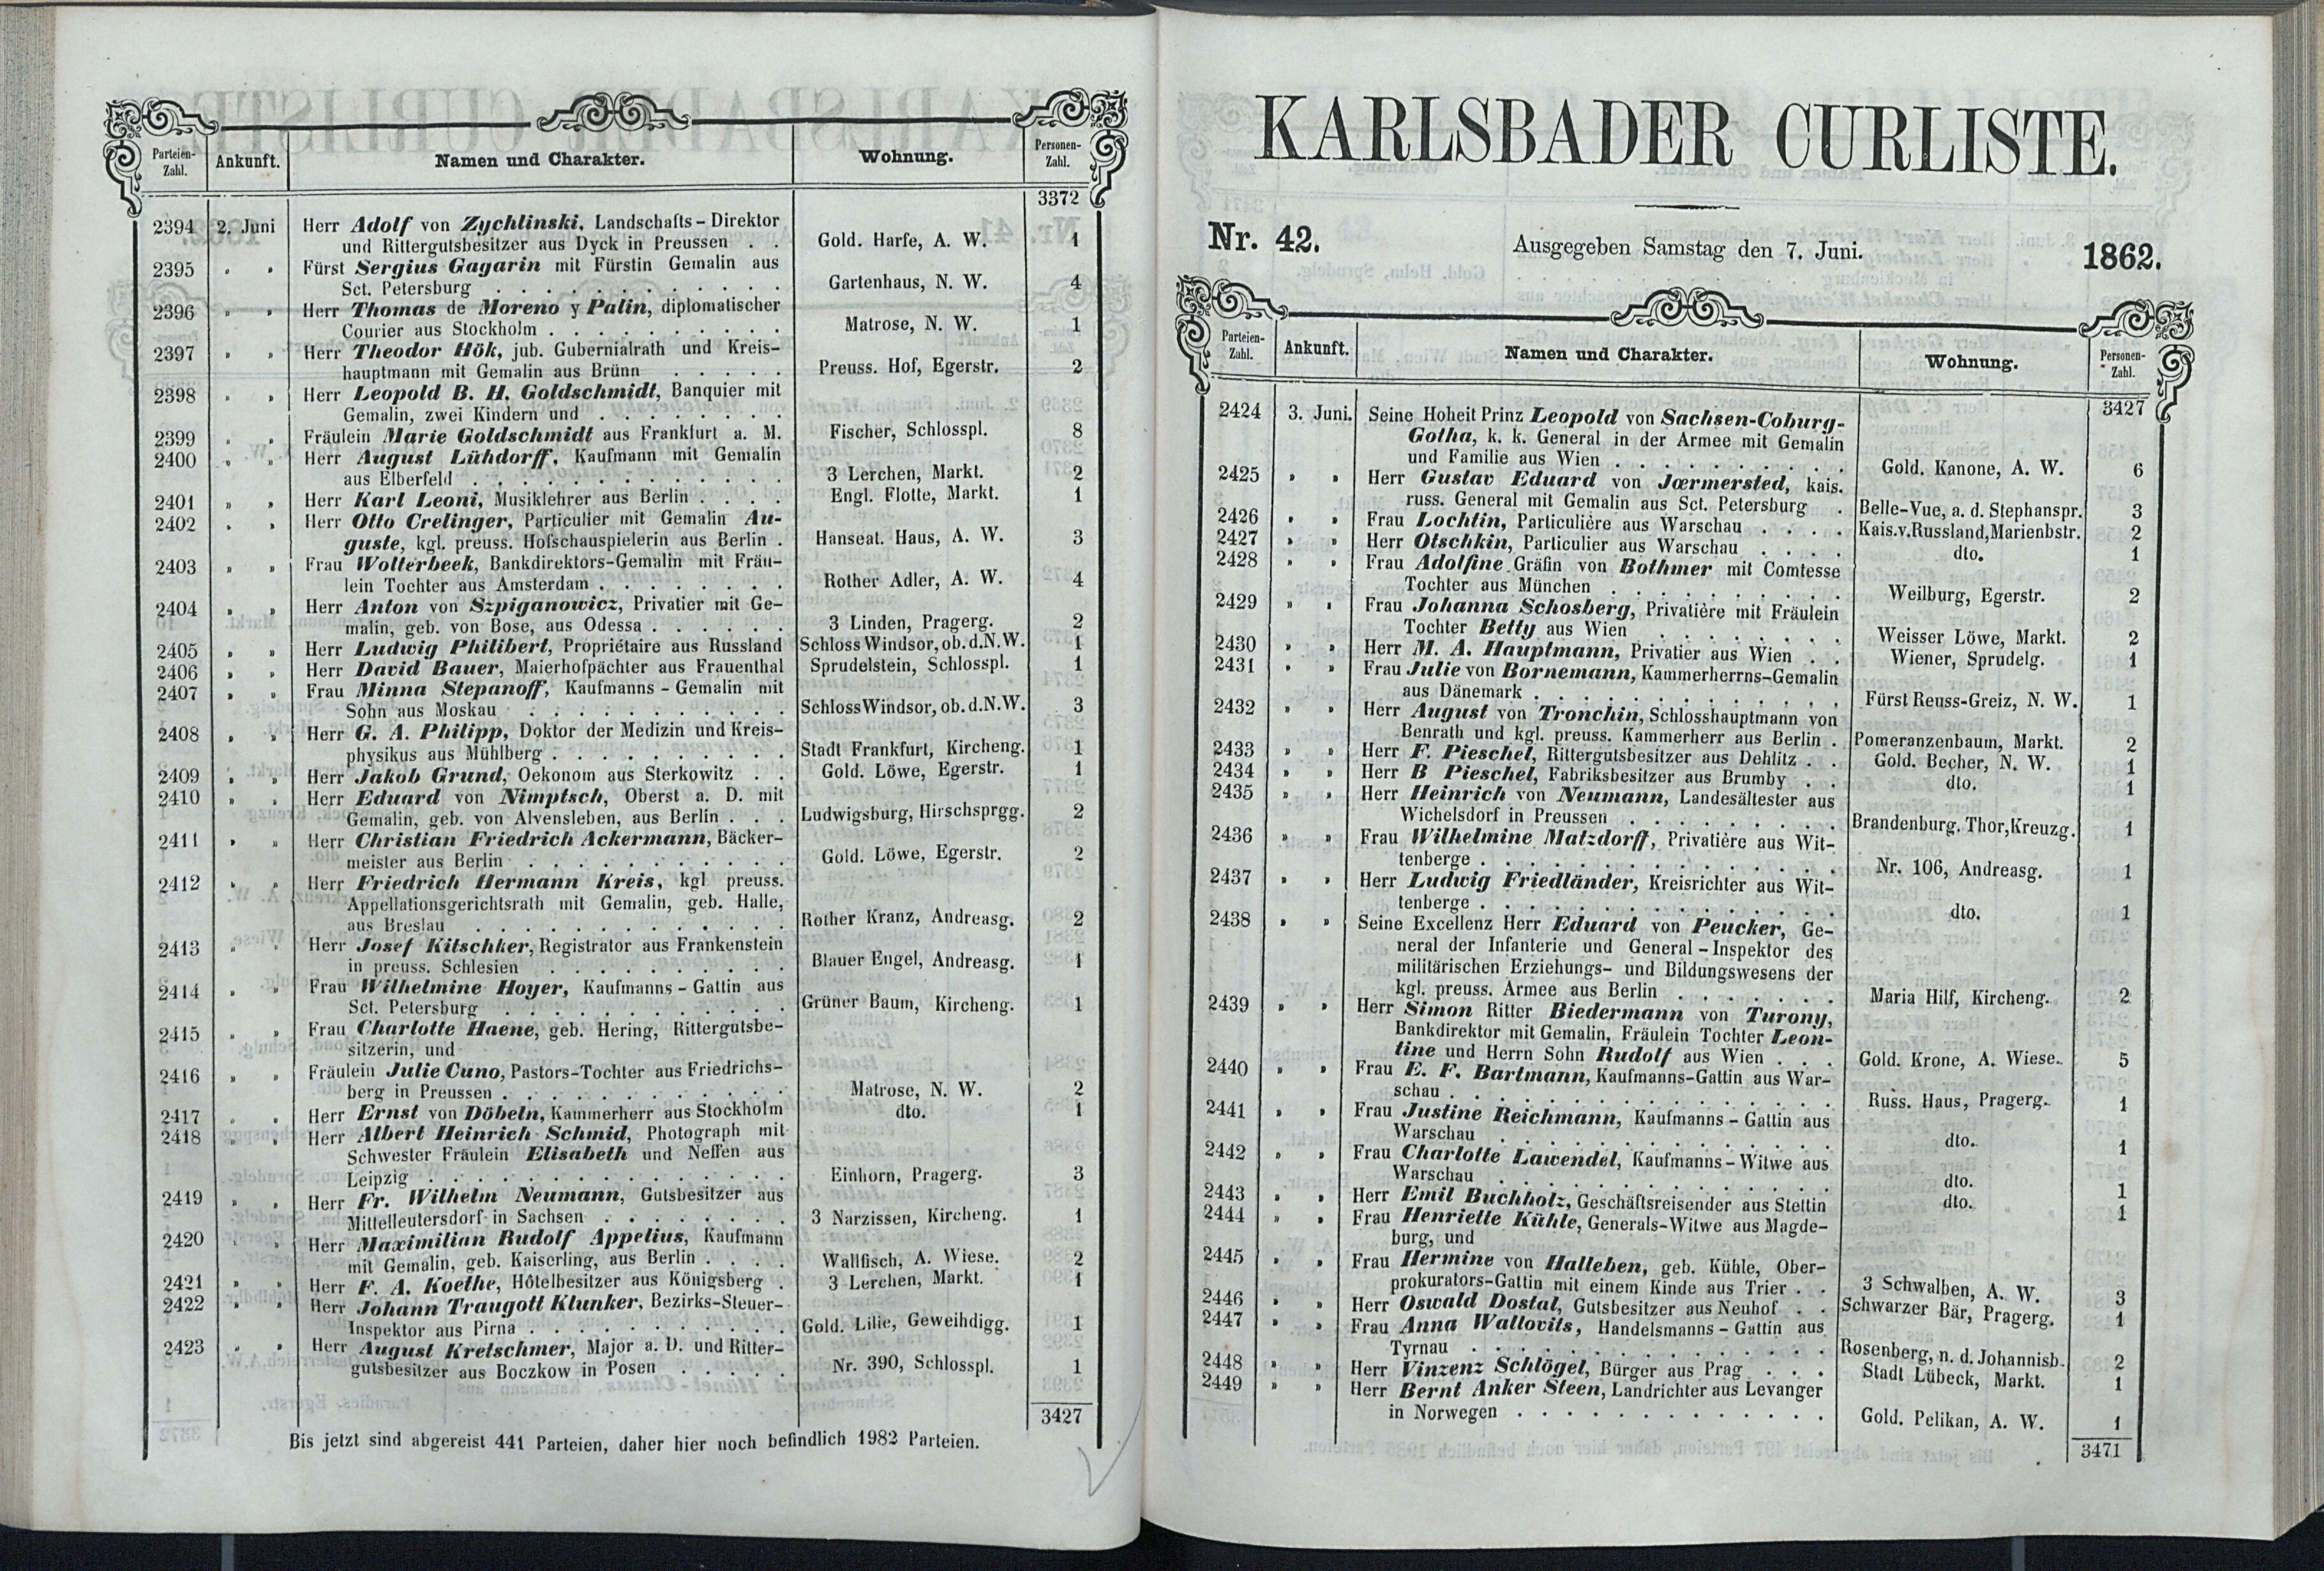 Parteien-Zahl. Ankunft. Namen und Charakter. Wohnung. Personen-Zahl.
3372
2394 2. Juni Herr Adolf von Zychlinski, Landschafts-Direktor
und Rittergutsbesitzer aus Dyck in Preussen . . Gold. Harfe, A. W. 1
2395 " " Fürst Sergius Gagarin mit Fürstin Gemalin aus
Sct. Petersburg . . . . . . . . . . . . Gartenhaus, N. W. 4
2396 " " Herr Thomas de Moreno y Palin, diplomatischer
Courier aus Stockholm . . . . . . . . . . Matrose, N. W. 1
2397 " " Herr Theodor Hök, jub. Gubernialrath und Kreis-
hauptmann mit Gemalin aus Brünn . . . . . Preuss. Hof, Egerstr. 2
2398 " " Herr Leopold B. H. Goldschmidt, Banquier mit
Gemalin, zwei Kindern und . . . . . . . .
2399 " " Fräulein Marie Goldschmidt aus Frankfurt a. M. Fischer, Schlosspl. 8
2400 " " Herr August Lühdorff, Kaufmann mit Gemalin
aus Elberfeld . . . . . . . . . . . . . 3 Lerchen, Markt. 2
2401 " " Herr Karl Leoni, Musiklehrer aus Berlin . . . . Engl. Flotte, Markt. 1
2402 " " Herr Otto Crelinger, Particulier mit Gemalin Au-
guste, kgl. preuss. Hofschauspielerin aus Berlin . Hanseat. Haus, A. W. 3
2403 " " Frau Wolterbeek, Bankdirektors-Gemalin mit Fräu-
lein Tochter aus Amsterdam . . . . . . . Rother Adler, A. W. 4
2404 " " Herr Anton von Szpiganowicz, Privatier mit Ge-
malin, geb. von Bose, aus Odessa . . . . . . 3 Linden, Pragerg. 2
2405 " " Herr Ludwig Philibert, Propriétaire aus Russland Schloss Windsor, ob. d. N. W. 1
2406 " " Herr David Bauer, Maierhofpächter aus Frauenthal Sprudelstein, Schlosspl. 1
2407 " " Frau Minna Stepanoff, Kaufmanns-Gemalin mit
Sohn aus Moskau . . . . . . . . . . . Schloss Windsor, ob. d. N. W. 3
2408 " " Herr G. A. Philipp, Doktor der Medizin und Kreis-
physikus aus Mühlberg . . . . . . . . . . Stadt Frankfurt, Kircheng. 1
2409 " " Herr Jakob Grund, Oekonom aus Sterkowitz . . Gold. Löwe, Egerstr. 1
2410 " " Herr Eduard von Nimptsch, Oberst a. D. mit
Gemalin, geb. von Alvensleben, aus Berlin . . . Ludwigsburg, Hirschsprgg. 2
2411 " " Herr Christian Friedrich Ackermann, Bäcker-
meister aus Berlin . . . . . . . . . . . Gold. Löwe, Egerstr. 2
2412 " " Herr Friedrich Hermann Kreis, kgl preuss.
Appellationsgerichtsrath mit Gemalin, geb. Halle,
aus Breslau . . . . . . . . . . . . Rother Kranz, Andreasg. 2
2413 " " Herr Josef Kitschker, Registrator aus Frankenstein
in preuss. Schlesien . . . . . . . . . . Blauer Engel, Andreasg. 1
2414 " " Frau Wilhelmine Hoyer, Kaufmanns-Gattin aus
Sct. Petersburg . . . . . . . . . . . . Grüner Baum, Kircheng. 1
2415 " " Frau Charlotte Haene, geb. Hering, Rittergutsbe-
sitzerin, und
2416 " " Fräulein Julie Cuno, Pastors-Tochter aus Friedrichs-
berg in Preussen . . . . . . . . . . . . Matrose, N. W. 2
2417 " " Herr Ernst von Döbeln, Kammerherr aus Stockholm dto. 1
2418 " " Herr Albert Heinrich Schmid, Photograph mit
Schwester Fräulein Elisabeth und Neffen aus
Leipzig . . . . . . . . . . . . . . . Einhorn, Pragerg. 3
2419 " " Herr Fr. Wilhelm Neumann, Gutsbesitzer aus
Mittelleutersdorf in Sachsen . . . . . . . . 3 Narzissen, Kircheng. 1
2420 " " Herr Maximilian Rudolf Appelius, Kaufmann
mit Gemalin, geb. Kaiserling, aus Berlin . . . . Wallfisch, A. Wiese. 2
2421 " " Herr F. A. Koethe, Hôtelbesitzer aus Königsberg . 3 Lerchen, Markt. 1
2422 " " Herr Johann Traugott Klunker, Bezirks-Steuer-
Inspektor aus Pirna . . . . . . . . . . . Gold. Lilie, Geweihdigg. 1
2423 " " Herr August Kretschmer, Major a. D. und Ritter-
gutsbesitzer aus Boczkow in Posen . . . . . Nr. 390, Schlosspl. 1
3427
Bis jetzt sind abgereist 441 Parteien, daher hier noch befindlich 1982 Parteien.
KARLSBADER CURLISTE.
Nr. 42. Ausgegeben Samstag den 7. Juni. 1862.
Parteien-Zahl. Ankunft. Namen und Charakter. Wohnung. Personen-Zahl.
3427
2424 3. Juni. Seine Hoheit Prinz Leopold von Sachsen-Coburg-
Gotha, k. k. General in der Armee mit Gemalin
und Familie aus Wien . . . . . . . . . . Gold. Kanone, A. W. 6
2425 " " Herr Gustav Eduard von Jœrmersted, kais.
russ. General mit Gemalin aus Sct. Petersburg . Belle-Vue, a. d. Stephanspr. 3
2426 " " Frau Lochtin, Particulière aus Warschau . . . . Kais. v. Russland, Marienbstr. 2
2427 " " Herr Otschkin, Particulier aus Warschau . . . . dto. 1
2428 " " Frau Adolfine Gräfin von Bothmer mit Comtesse
Tochter aus München . . . . . . . . . . Weilburg, Egerstr. 2
2429 " " Frau Johanna Schosberg, Privatière mit Fräulein
Tochter Betty aus Wien . . . . . . . . Weisser Löwe, Markt. 2
2430 " " Herr M. A. Hauptmann, Privatier aus Wien . . Wiener, Sprudelg. 1
2431 " " Frau Julie von Bornemann, Kammerherrns-Gemalin
aus Dänemark . . . . . . . . . . . . . Fürst Reuss-Greiz, N. W. 1
2432 " " Herr August von Tronchin, Schlosshauptmann von
Benrath und kgl. preuss. Kammerherr aus Berlin . Pomeranzenbaum, Markt. 2
2433 " " Herr F. Pieschel, Rittergutsbesitzer aus Dehlitz . . Gold. Becher, N. W. 1
2434 " " Herr B Pieschel, Fabriksbesitzer aus Brumby . . dto. 1
2435 " " Herr Heinrich von Neumann, Landesältester aus
Wichelsdorf in Preussen . . . . . . . . . Brandenburg. Thor, Kreuzg. 1
2436 " " Frau Wilhelmine Matzdorff, Privatière aus Wit-
tenberge . . . . . . . . . . . . . . . Nr. 106, Andreasg. 1
2437 " " Herr Ludwig Friedländer, Kreisrichter aus Wit-
tenberge . . . . . . . . . . . . . . . dto. 1
2438 " " Seine Excellenz Herr Eduard von Peucker, Ge-
neral der Infanterie und General-Inspektor des
militärischen Erziehungs- und Bildungswesens der
kgl. preuss. Armee aus Berlin . . . . . . . Maria Hilf, Kircheng. 2
2439 " " Herr Simon Ritter Biedermann von Turony,
Bankdirektor mit Gemalin, Fräulein Tochter Leon-
tine und Herrn Sohn Rudolf aus Wien . . . Gold. Krone, A. Wiese. 5
2440 " " Frau E. F. Bartmann, Kaufmanns-Gattin aus War-
schau . . . . . . . . . . . . . . . . Russ. Haus, Pragerg. 1
2441 " " Frau Justine Reichmann, Kaufmanns-Gattin aus
Warschau . . . . . . . . . . . . . . dto. 1
2442 " " Frau Charlotte Lawendel, Kaufmanns-Witwe aus
Warschau . . . . . . . . . . . . . . dto. 1
2443 " " Herr Emil Buchholz, Geschäftsreisender aus Stettin dto. 1
2444 " " Frau Henriette Kühle, Generals-Witwe aus Magde-
burg, und
2445 " " Frau Hermine von Halleben, geb. Kühle, Ober-
prokurators-Gattin mit einem Kinde aus Trier . . 3 Schwalben, A. W. 3
2446 " " Herr Oswald Dostal, Gutsbesitzer aus Neuhof . . Schwarzer Bär, Pragerg. 1
2447 " " Frau Anna Wallovits, Handelsmanns-Gattin aus
Tyrnau . . . . . . . . . . . . . . . Rosenberg, n. d. Johannisb. 2
2448 " " Herr Vinzenz Schlögel, Bürger aus Prag . . . Stadt Lübeck, Markt. 1
2449 " " Herr Bernt Anker Steen, Landrichter aus Levanger
in Norwegen . . . . . . . . . . . . . Gold. Pelikan, A. W. 1
3471